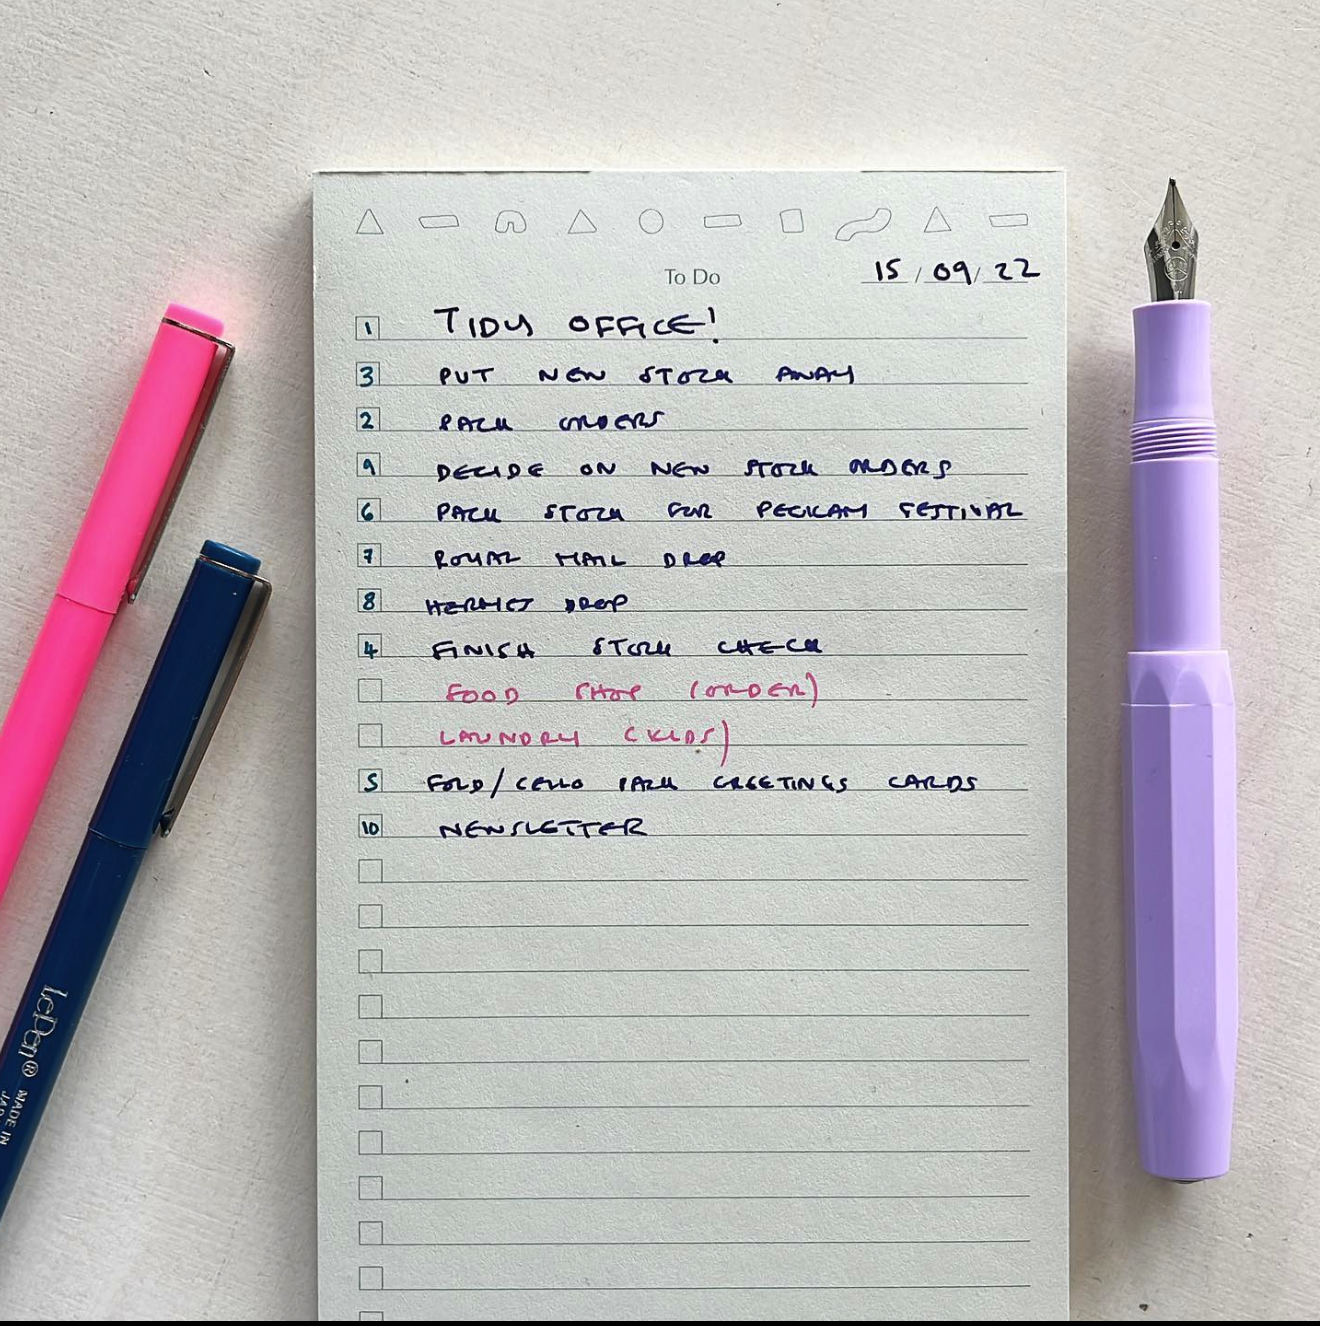 To Do
15 / 09 / 22
1 TIDY OFFICE!
3 PUT NEW STOCK AWAY
2 PACK ORDERS
9 DECIDE ON NEW STOCK ORDERS
6 PACK STOCK FOR PECKAM FESTIVAL
7 ROYAL MAIL DROP
8 HERMES DROP
4 FINISH STOCK CHECK
FOOD SHOP (ORDER)
LAUNDRY (KIDS)
5 FOLD/CELLO PACK GREETINGS CARDS
10 NEWSLETTER
LePen®
MADE IN